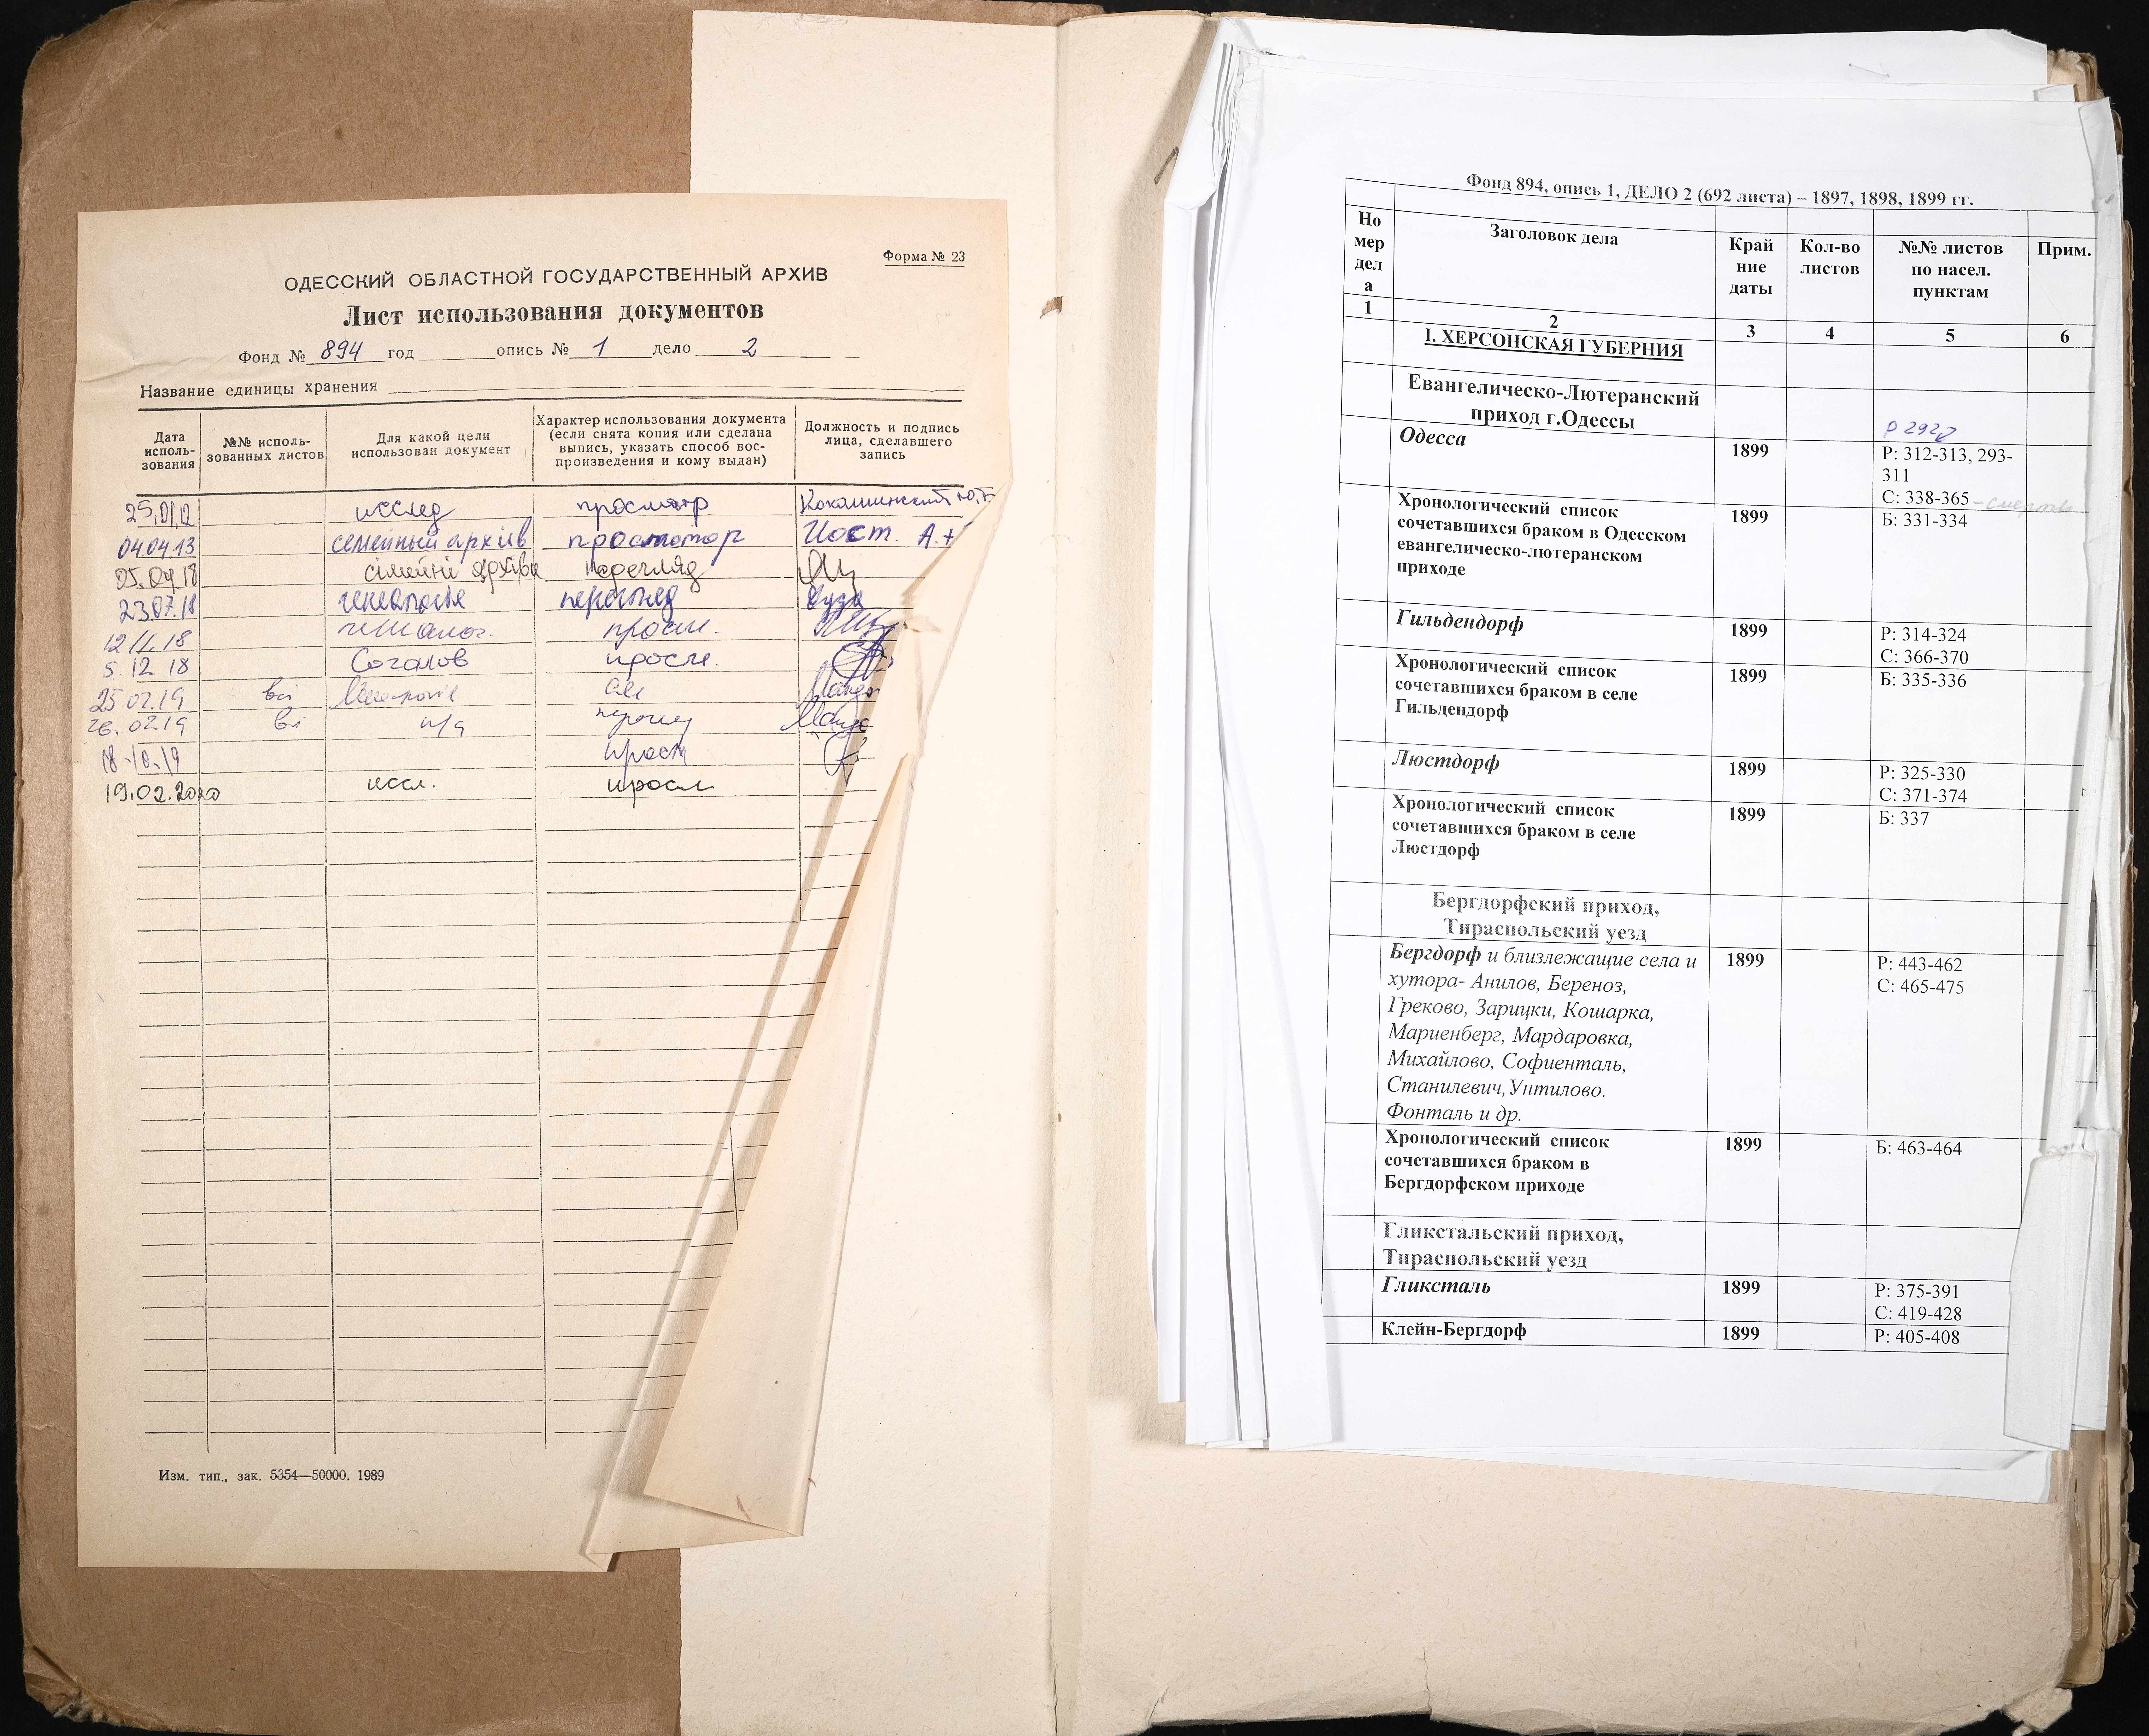 Форма № 23
ОДЕССКИЙ ОБЛАСТНОЙ ГОСУДАРСТВЕННЫЙ АРХИВ
Лист использования документов
Фонд № 894 год опись № 1 дело 2
Название единицы хранения
Дата исполь-зования
№№ исполь-зованных листов
Для какой цели использован документ
Характер использования документа (если снята копия или сделана выпись, указать способ вос-производения и кому выдан)
Должность и подпись лица, сделавшего запись
исслед просмотр
04.04.13 семейный архив просмотр
05.04.18 сімейні перегляд
23.07.18 перегляд
12.11.18 просм.
5.12.18 просм.
25.02.19 всі
26.02.19 всі
18.10.19 просм
19.02.2020 иссл. просм
Изм. тип., зак. 5354—50000. 1989
Фонд 894, опись 1, ДЕЛО 2 (692 листа) – 1897, 1898, 1899 гг.
Но
мер
дел
а
Заголовок дела
Край
ние
даты
Кол-во
листов
№№ листов
по насел.
пунктам
Прим.
1 2 3 4 5 6
I. ХЕРСОНСКАЯ ГУБЕРНИЯ
Евангелическо-Лютеранский
приход г.Одессы
Одесса 1899 Р: 312-313, 293-
311
С: 338-365
Хронологический список 1899 Б: 331-334
сочетавшихся браком в Одесском
евангелическо-лютеранском
приходе
Гильдендорф 1899 Р: 314-324
С: 366-370
Хронологический список 1899 Б: 335-336
сочетавшихся браком в селе
Гильдендорф
Люстдорф 1899 Р: 325-330
С: 371-374
Хронологический список 1899 Б: 337
сочетавшихся браком в селе
Люстдорф
Бергдорфский приход,
Тираспольский уезд
Бергдорф и близлежащие села и 1899 Р: 443-462
хутора- Анилов, Береноз, С: 465-475
Греково, Зарицки, Кошарка,
Мариенберг, Мардаровка,
Михайлово, Софиенталь,
Станилевич, Унтилово.
Фонталь и др.
Хронологический список 1899 Б: 463-464
сочетавшихся браком в
Бергдорфском приходе
Гликстальский приход,
Тираспольский уезд
Гликсталь 1899 Р: 375-391
С: 419-428
Клейн-Бергдорф 1899 Р: 405-408